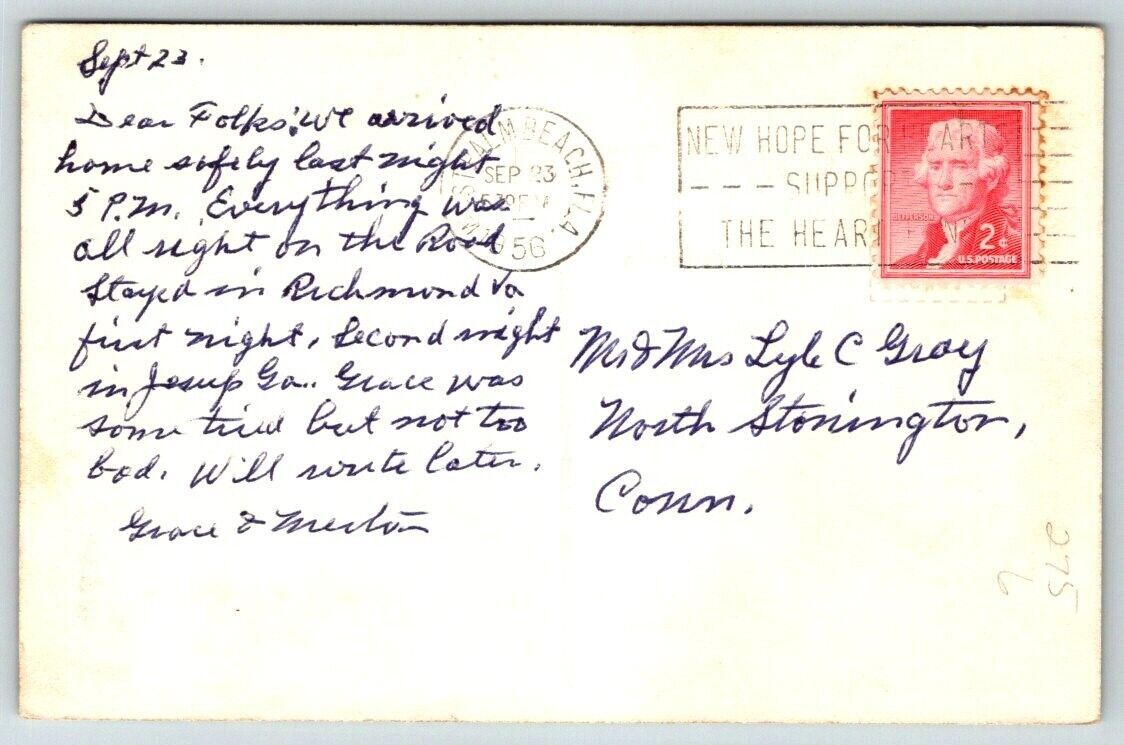 Sept 23.
Dear Folks: We arrived
home safely last night
5 P.M. Everything was
all right on the Road
Stayed in Richmond Va
first night, Second night
in Jesup Ga.. Grace was
some tired but not too
bad. Will write later.
Grace & Merton
PALM BEACH, FLA.
SEP 23
PM
1956
NEW HOPE FOR HEAR
SUPPO
THE HEAR
JEFFERSON
2¢
U.S. POSTAGE
Mr & Mrs Lyle C Gray
North Stonington,
Conn.
275